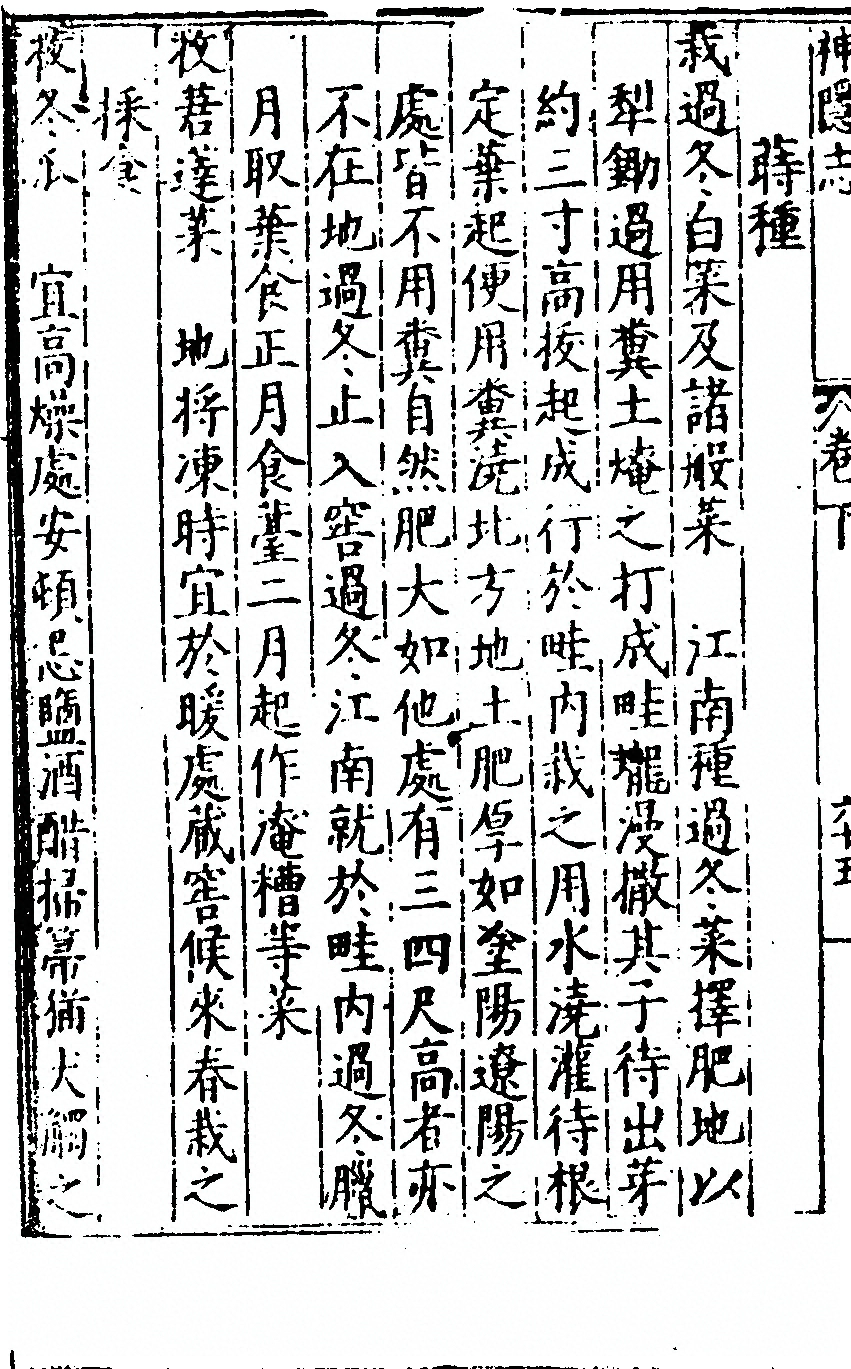 神隱志 卷下 六十五
蒔種
栽過冬白菜及諸般菜 江南種過冬菜擇肥地以
犁鋤過用糞土燖之打成畦壠漫撒其子待出芽
約三寸高拔起成行於畦内栽之用水澆灌待根
定葉起便用糞澆北方地土肥厚如瀋陽遼陽之
處皆不用糞自然肥大如他處有三四尺高者亦
不在地過冬止入窖過冬江南就於畦内過冬臘
月取葉食正月食薹二月起作淹糟等菜
收莙薘菜 地将凍時宜於暖處藏窖候來春栽之
採食
收冬瓜 宜高燥處安頓忌鹽酒醋掃箒猫犬觸之